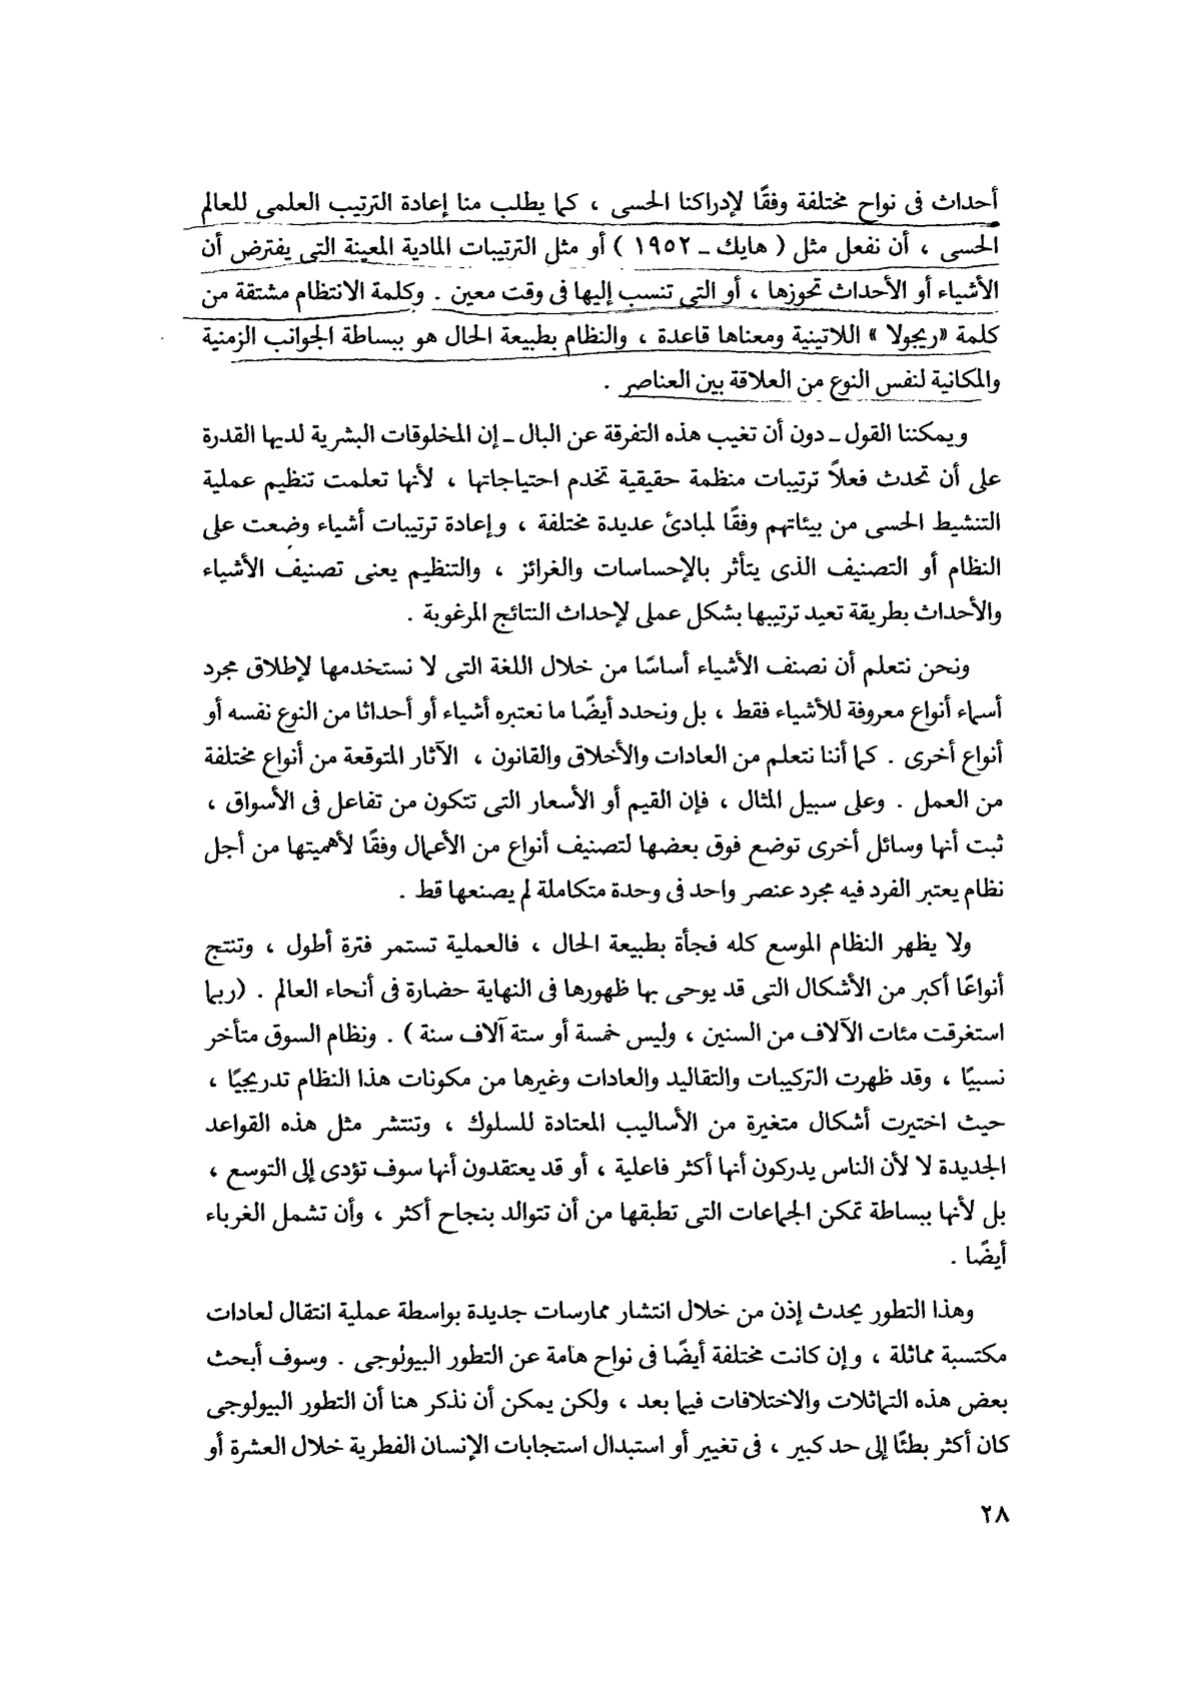 أحداث فى نواح مختلفة وفقًا لإدراكنا الحسى ، كما يطلب منا إعادة الترتيب العلمى للعالم
الحسى ، أن نفعل مثل ( هايك ـ ١٩٥٢ ) أو مثل الترتيبات المادية المعينة التى يفترض أن
الأشياء أو الأحداث تحوزها ، أو التى تنسب إليها فى وقت معين . وكلمة الانتظام مشتقة من
كلمة «ريجولا » اللاتينية ومعناها قاعدة ، والنظام بطبيعة الحال هو ببساطة الجوانب الزمنية
والمكانية لنفس النوع من العلاقة بين العناصر .
ويمكننا القول ـ دون أن تغيب هذه التفرقة عن البال ـ إن المخلوقات البشرية لديها القدرة
على أن تحدث فعلاً ترتيبات منظمة حقيقية تخدم احتياجاتها ، لأنها تعلمت تنظيم عملية
التنشيط الحسى من بيئاتهم وفقًا لمبادئ عديدة مختلفة ، وإعادة ترتيبات أشياء وضعت على
النظام أو التصنيف الذى يتأثر بالإحساسات والغرائز ، والتنظيم يعنى تصنيف الأشياء
والأحداث بطريقة تعيد ترتيبها بشكل عملى لإحداث النتائج المرغوبة .
ونحن نتعلم أن نصنف الأشياء أساسًا من خلال اللغة التى لا نستخدمها لإطلاق مجرد
أسماء أنواع معروفة للأشياء فقط ، بل ونحدد أيضًا ما نعتبره أشياء أو أحداثا من النوع نفسه أو
أنواع أخرى . كما أننا نتعلم من العادات والأخلاق والقانون ، الآثار المتوقعة من أنواع مختلفة
من العمل . وعلى سبيل المثال ، فإن القيم أو الأسعار التى تتكون من تفاعل فى الأسواق ،
ثبت أنها وسائل أخرى توضع فوق بعضها لتصنيف أنواع من الأعمال وفقًا لأهميتها من أجل
نظام يعتبر الفرد فيه مجرد عنصر واحد فى وحدة متكاملة لم يصنعها قط .
ولا يظهر النظام الموسع كله فجأة بطبيعة الحال ، فالعملية تستمر فترة أطول ، وتنتج
أنواعًا أكبر من الأشكال التى قد يوحى بها ظهورها فى النهاية حضارة فى أنحاء العالم . (ربما
استغرقت مئات الآلاف من السنين ، وليس خمسة أو ستة آلاف سنة ) . ونظام السوق متأخر
نسبيًا ، وقد ظهرت التركيبات والتقاليد والعادات وغيرها من مكونات هذا النظام تدريجيًا ،
حيث اختيرت أشكال متغيرة من الأساليب المعتادة للسلوك ، وتنتشر مثل هذه القواعد
الجديدة لا لأن الناس يدركون أنها أكثر فاعلية ، أو قد يعتقدون أنها سوف تؤدى إلى التوسع ،
بل لأنها ببساطة تمكن الجماعات التى تطبقها من أن تتوالد بنجاح أكثر ، وأن تشمل الغرباء
أيضًا .
وهذا التطور يحدث إذن من خلال انتشار ممارسات جديدة بواسطة عملية انتقال لعادات
مكتسبة مماثلة ، وإن كانت مختلفة أيضًا فى نواح هامة عن التطور البيولوجى . وسوف أبحث
بعض هذه التماثلات والاختلافات فيما بعد ، ولكن يمكن أن نذكر هنا أن التطور البيولوجى
كان أكثر بطئًا إلى حد كبير ، فى تغيير أو استبدال استجابات الإنسان الفطرية خلال العشرة أو
٢٨